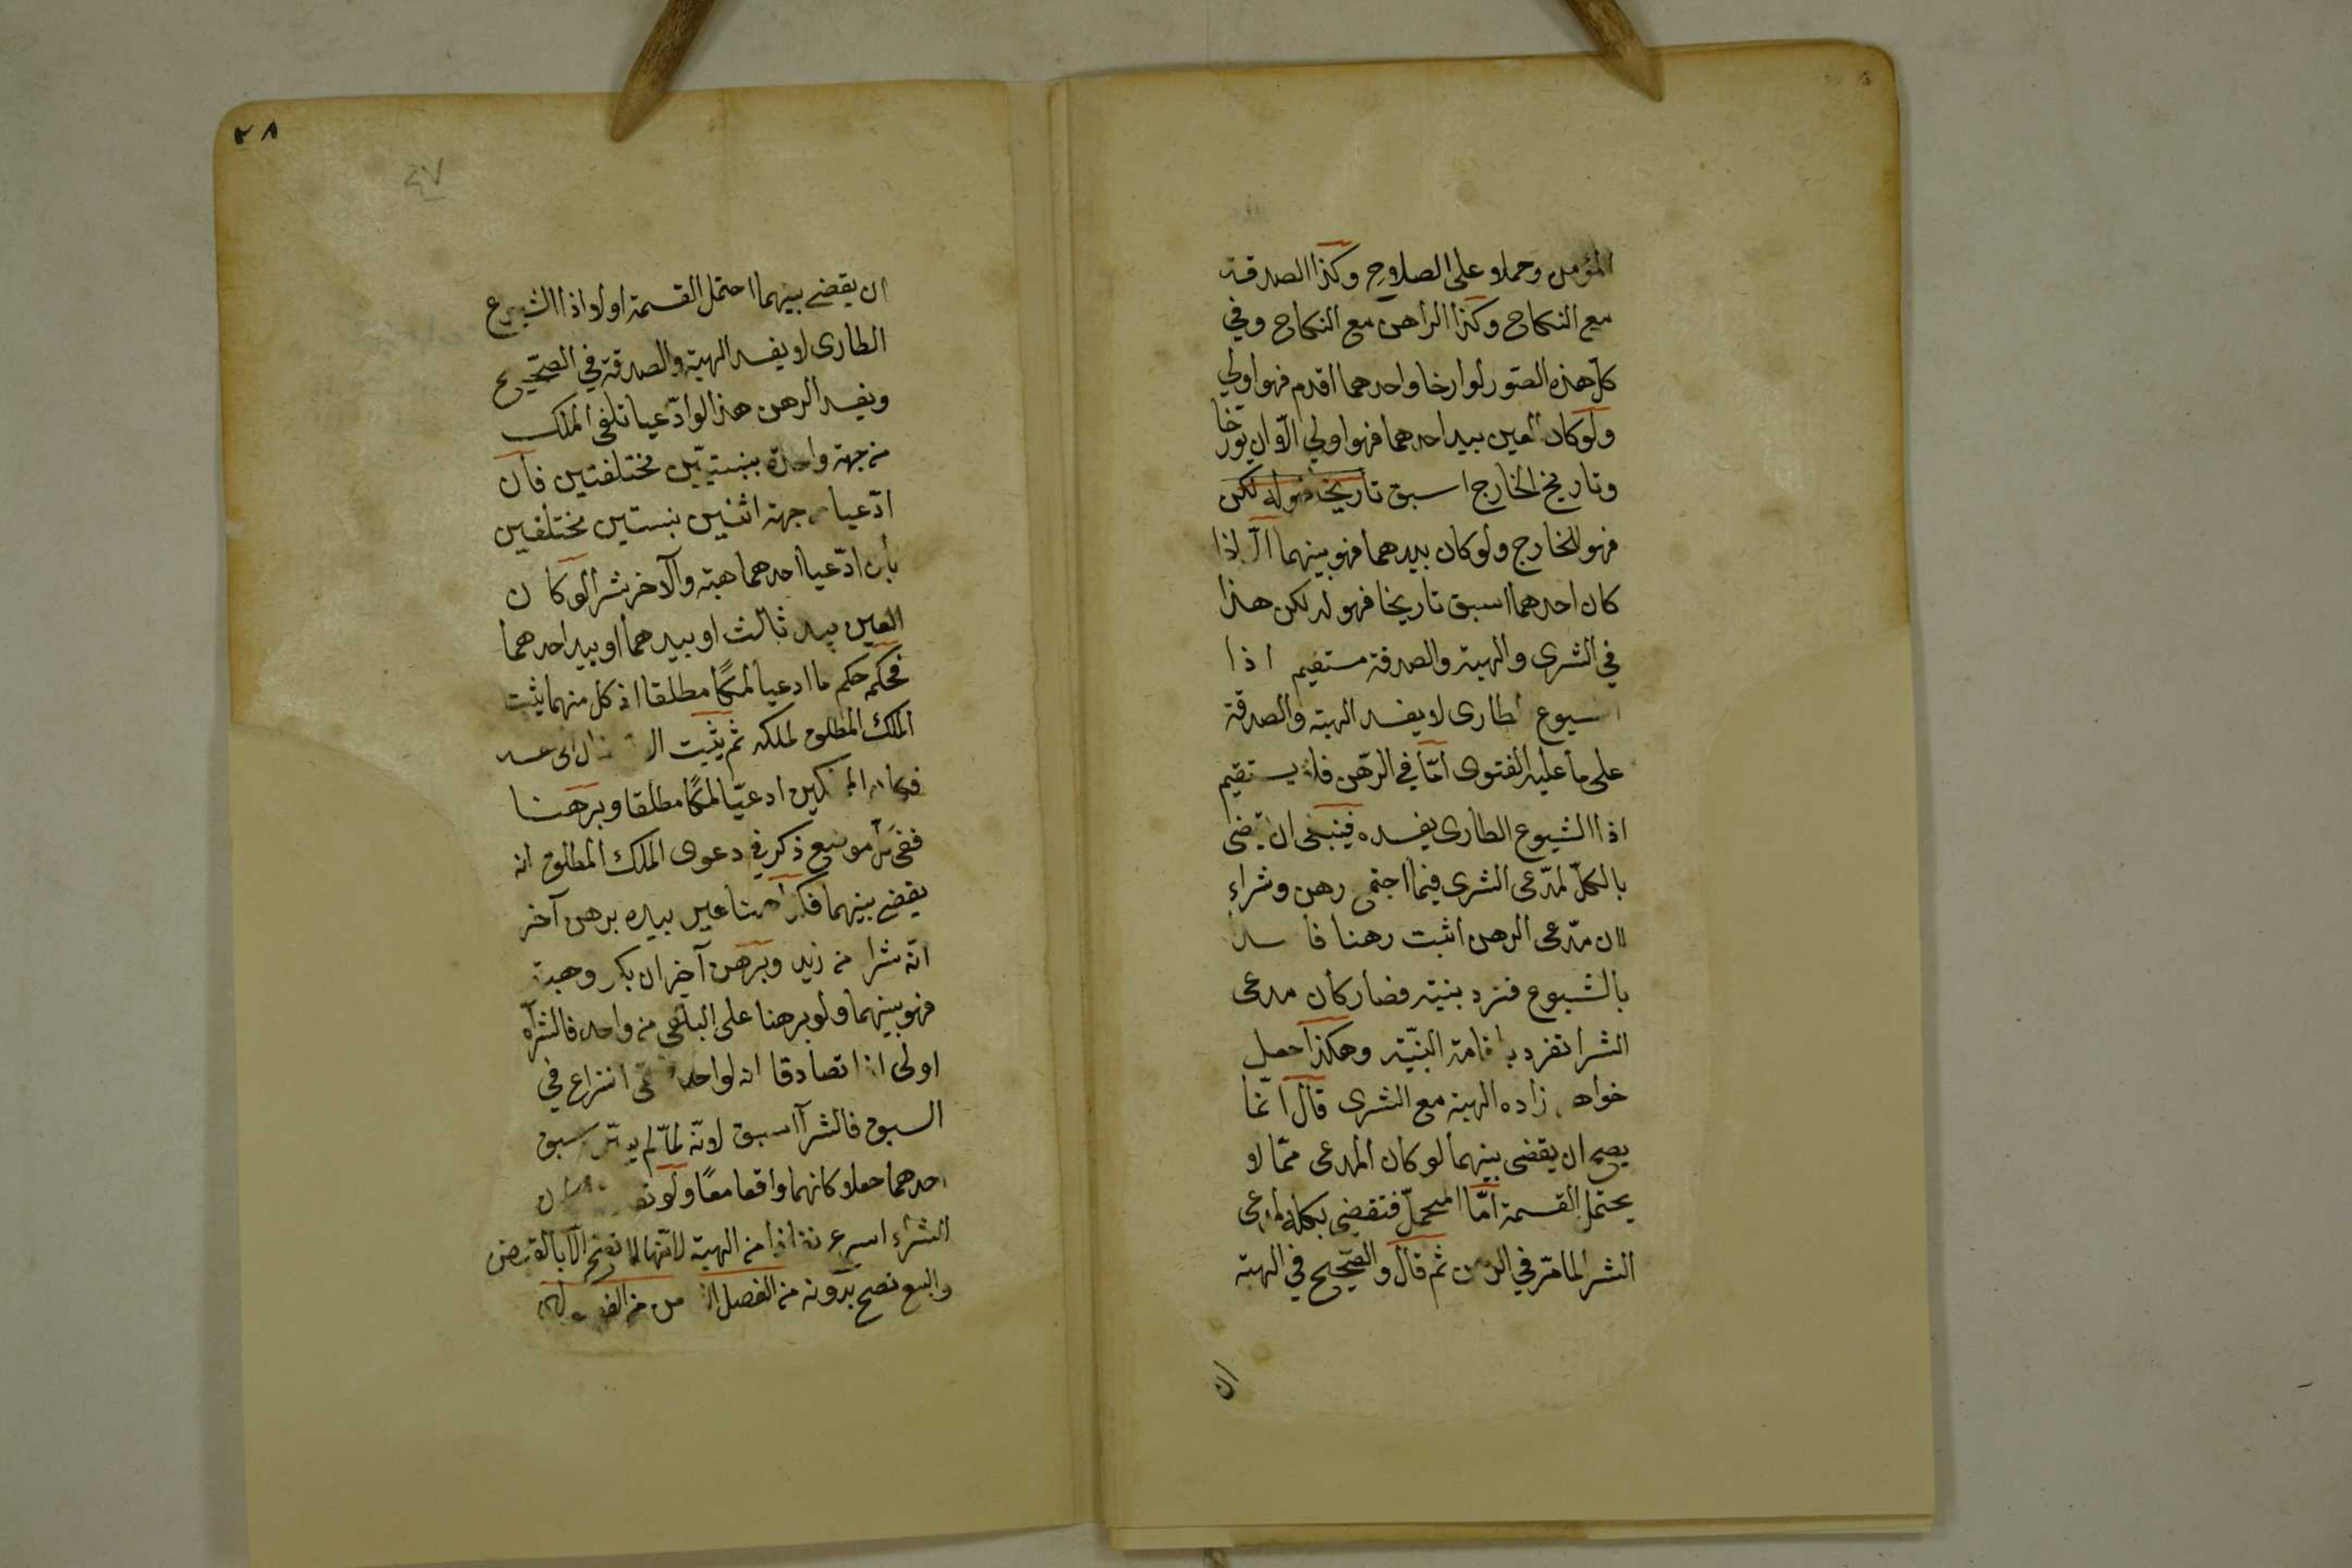 المؤمن وحملا على الصلاح وكذا الصدقة
مع النكاح وكذا الراهن مع النكاح وفي
كل هذه الصور لو ارخا واحدهما اقدم فهو اولى
ولو كان العين بيد احدهما فهو اولى الا ان يؤرخا
وتاريخ الخارج اسبق تاريخا فهو له لكن
فهو للخارج ولو كان بيدهما فهو بينهما الا اذا
كان احدهما اسبق تاريخا فهو له لكن هذا
في الشرى والهبة والصدقة مستقيم اذا
الشيوع الطارى لا يفسد الهبة والصدقة
على ما عليه الفتوى امّا في الرهن فلا يستقيم
اذا الشيوع الطارى يفسده فينبغى ان يقضى
بالكلّ لمدّعى الشرى فيما اجتمع رهن وشراء
لان مدّعى الرهن اثبت رهنا فاسدا
بالشيوع فترد بنيته فصار كان مدعى
الشرا تفرد باقامة البنيّة وهكذا جعل
خواهر زاده الهبة مع الشرى قال انما
يصح ان يقضى بينهما لو كان المدعى ممّا لا
يحتمل القسمة امّا المحتمل فتقضى بكله لمدعى
الشر لما مرّ في الرهن ثم قال والصّحيح في الهبة
ان
٢٨
٤٧
ان يقضى بينهما احتمل القسمة اولا اذا الشيوع
الطارى لا يفسد الهبة والصدقة في الصّحيح
ويفسد الرهن هذا لو ادّعيا تلقى الملك
من جهة واحدة ببنستين مختلفتين فان
ادّعيا من جهة اثنين بنستين مختلفين
بان ادّعيا احدهما هبة والآخر شرا لو كان
العين بيد ثالث او بيدهما او بيد احدهما
فحكمه حكم ما ادعيا ملكًا مطلقا اذ كل منهما يثبت
الملك المطلق لملكه ثم يثبت الانتقال الى عند
فكان المالكين ادعيّا ملكًا مطلقا وبرهنا
ففى كل موضع ذكر في دعوى الملك المطلق انه
يقضى بينهما فكذا هنا عين بيده برهن آخر
انّه شرا من زيد وبرهن آخر ان بكر وهبه
فهو بينهما ولو برهنا على التلقى من واحد فالشرآء
اولى اذا تصادقا انه لواحد النزاع في
السبق فالشرآ اسبق لانّه لمّا لم يثبت سبق
احدهما جعلا كانهما واقعا معًا ولو
الشراء اسرع نفاذا من الهبة لانّها لا تصح الا بالقبض
والبيع تصح بدونه من الفصل من